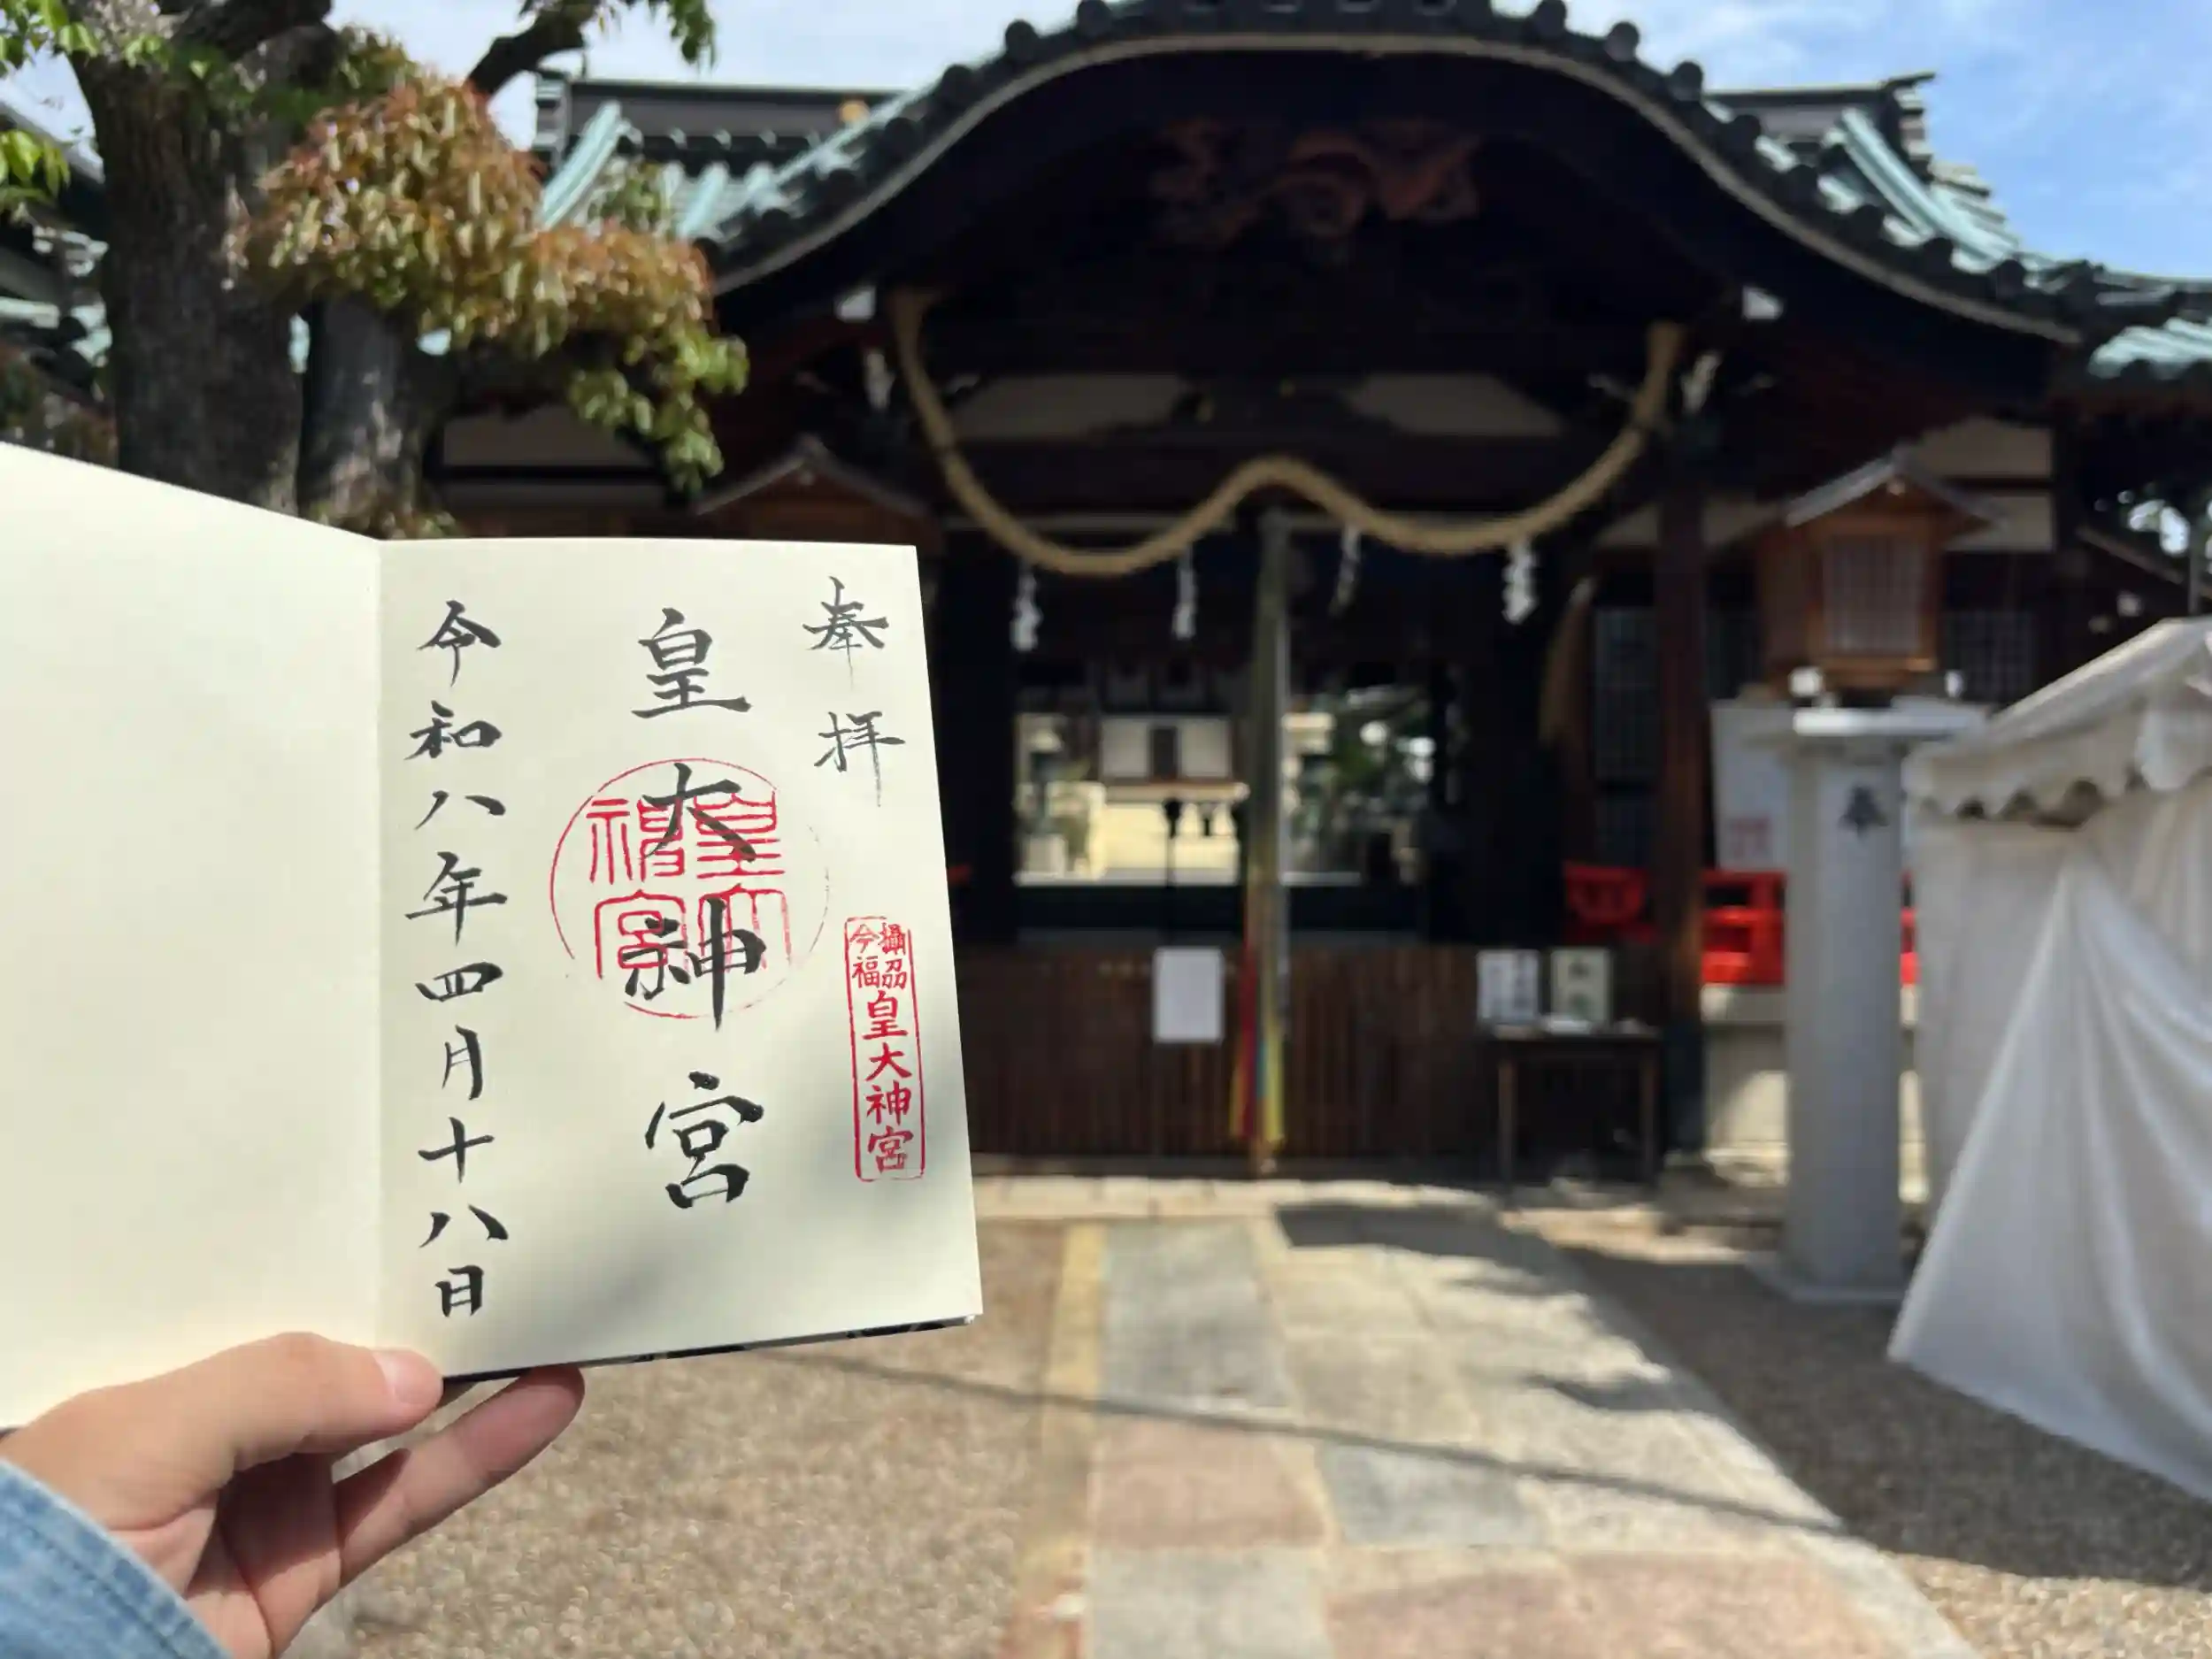 奉拝
皇大神宮
皇大神宮
攝刕
今福
皇大神宮
令和八年四月十八日
奉